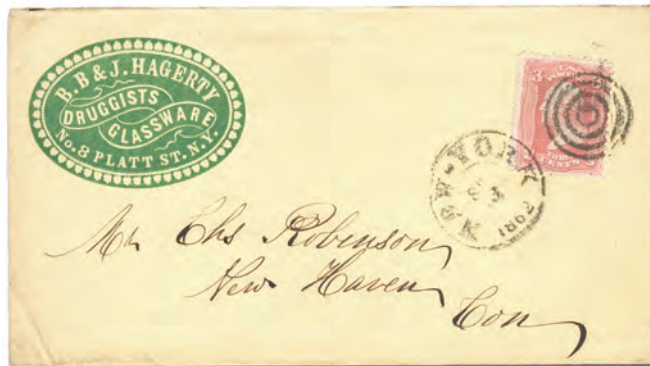 B. B & J. HAGERTY
DRUGGISTS
GLASSWARE
No. 8 PLATT ST. N.Y.
3
CENTS
NEW-YORK
Mr Chs Robinson,
New Haven,
Con,